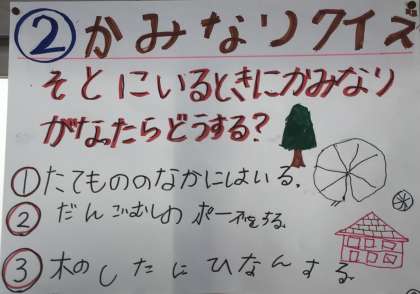 ② かみなりクイズ
そとにいるときにかみなり
がなったらどうする?
① たてもののなかにはいる。
② だんごむしのポーズをする。
③ 木のしたにひなんする。